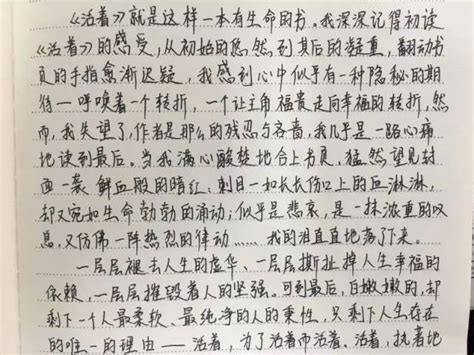 《活着》就是这样一本有生命的书。我深深记得初读
《活着》的感受，从初始的悠然到其后的凝重，翻动书
页的手指愈渐迟疑，我感到心中似乎有一种隐秘的期
待——呼唤着一个转折，一个让主角福贵走向幸福的转折，然
而，我失望了，作者是那么的残忍与吝啬，我几乎是一路心痛
地读到最后。当我满心酸楚地合上书页，猛然望见封
面一袭鲜血般的暗红，刺目一如长长伤口上的血淋淋，
却又宛如生命勃勃的涌动；似乎是悲哀，是一抹浓重的叹
息，又仿佛一阵热烈的律动……我的泪直直地落了下来。
一层层褪去人生的虚华、一层层撕扯掉人生幸福的
依赖，一层层摧毁着人的坚强。可到最后，白嫩嫩的，却
剩下一个人最柔软、最纯净的人的秉性，只剩下人生存在
的唯一的理由——活着，为了活着而活着、活着，执著地